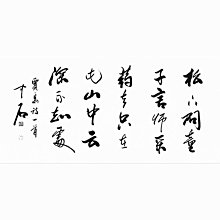 松下问童
子言师采
药去只在
此山中云
深不知處
賈島诗一首
中石